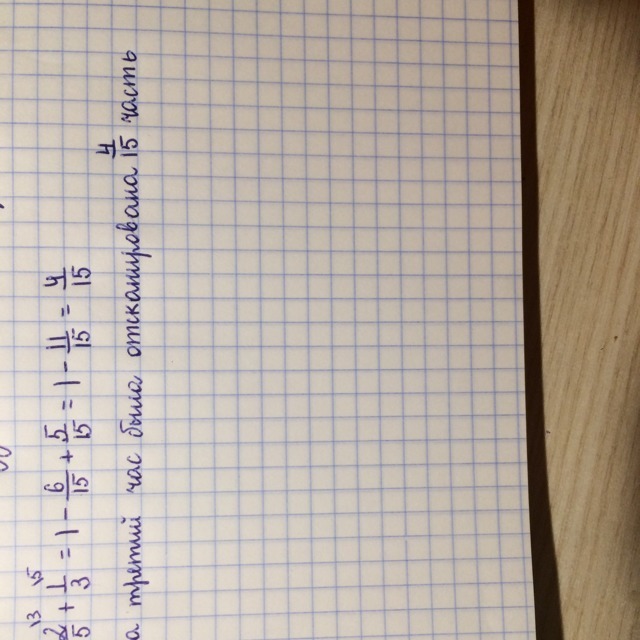 2/5 \3 + 1/3 \5 = 1 - 6/15 + 5/15 = 1 - 11/15 = 4/15
а третий час была отсканирована 4/15 часть